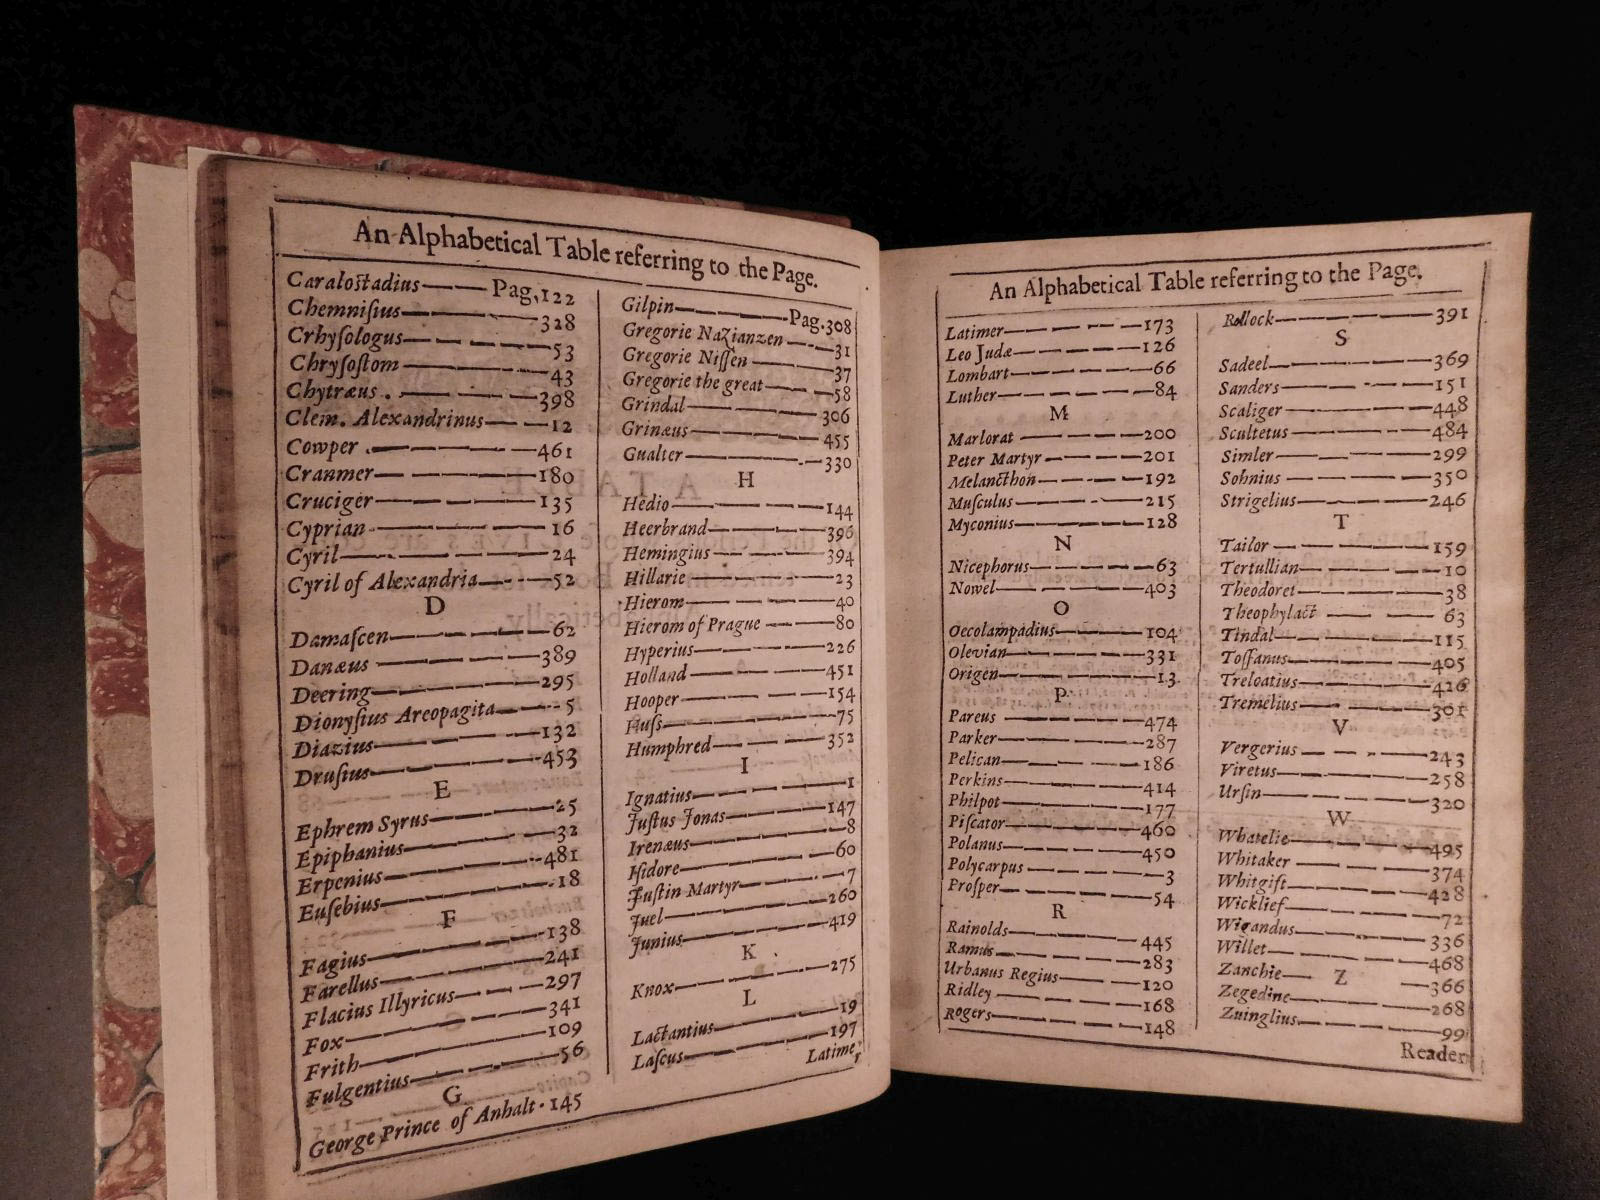 An Alphabetical Table referring to the Page.
Caraloſtadius Pag. 122
Chemniſius 328
Crhyſologus 53
Chryſoſtom 43
Chytræus 398
Clem. Alexandrinus 12
Cowper 461
Cranmer 180
Cruciger 135
Cyprian 16
Cyril 24
Cyril of Alexandria 52
D
Damaſcen 62
Danæus 389
Deering 295
Dionyſius Areopagita 5
Diazius 132
Druſius 453
E
Ephrem Syrus 25
Epiphanius 32
Erpenius 481
Euſebius 18
F
Fagius 138
Farellus 241
Flacius Illyricus 297
Fox 341
Frith 109
Fulgentius 56
G
George Prince of Anhalt 145
Gilpin Pag. 308
Gregorie Nazianzen 31
Gregorie Niſſen 37
Gregorie the great 58
Grindal 306
Grinæus 455
Gualter 330
H
Hedio 144
Heerbrand 396
Hemingius 394
Hillarie 23
Hierom 40
Hierom of Prague 80
Hyperius 226
Holland 451
Hooper 154
Huſs 75
Humphred 352
I
Ignatius 1
Juſtus Jonas 147
Irenæus 8
Iſidore 60
Juſtin Martyr 7
Juel 260
Junius 419
K
Knox 275
L
Lactantius 19
Laſcus 197
Latimer
An Alphabetical Table referring to the Page.
Latimer 173
Leo Judæ 126
Lombart 66
Luther 84
M
Marlorat 200
Peter Martyr 201
Melancthon 192
Muſculus 215
Myconius 128
N
Nicephorus 63
Nowel 403
O
Oecolampadius 104
Olevian 331
Origen 13
P
Pareus 474
Parker 287
Pelican 186
Perkins 414
Philpot 177
Piſcator 460
Polanus 450
Polycarpus 3
Proſper 54
R
Rainolds 445
Ramus 283
Urbanus Regius 120
Ridley 168
Rogers 148
Rollock 391
S
Sadeel 369
Sanders 151
Scaliger 448
Scultetus 484
Simler 299
Sohnius 350
Strigelius 246
T
Tailor 159
Tertullian 10
Theodoret 38
Theophylact 63
Tindal 115
Toſſanus 405
Treloatius 426
Tremelius 301
V
Vergerius 243
Viretus 258
Urſin 320
W
Whatelie 495
Whitaker 374
Whitgift 428
Wicklief 72
Wigandus 336
Willet 468
Z
Zanchie 366
Zegedine 268
Zuinglius 99
Reader